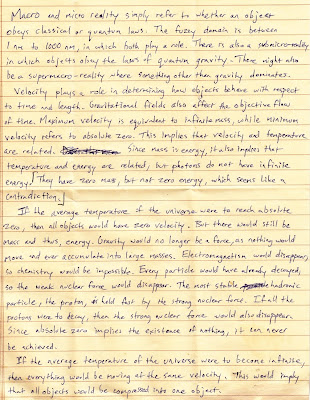 Macro and micro reality simply refer to whether an object
obeys classical or quantum laws. The fuzzy domain is between
1 nm to 1000 nm, in which both play a role. There is also a submicro-reality
in which objects obey the laws of quantum gravity. There might also
be a supermacro-reality where something other than gravity dominates.
Velocity plays a role in determining how objects behave with respect
to time and length. Gravitational fields also affect the objective flow
of time. Maximum velocity is equivalent to infinite mass, while minimum
velocity refers to absolute zero. This implies that velocity and temperature
are related. Since mass is energy, it also implies that
temperature and energy are related, but photons do not have infinite
energy. [They have zero mass, but not zero energy, which seems like a
contradiction.]
If the average temperature of the universe were to reach absolute
zero, then all objects would have zero velocity. But there would still be
mass and thus, energy. Gravity would no longer be a force, as nothing would
move and ever accumulate into large masses. Electromagnetism would disappear,
so chemistry would be impossible. Every particle would have already decayed,
so the weak nuclear force would disappear. The most stable hadronic
particle, the proton, is held fast by the strong nuclear force. If all the
protons were to decay, then the strong nuclear force would also disappear.
Since absolute zero implies the existence of nothing, it can never
be achieved.
If the average temperature of the universe were to become infinite,
then everything would be moving at the same velocity. This would imply
that all objects would be compressed into one object.